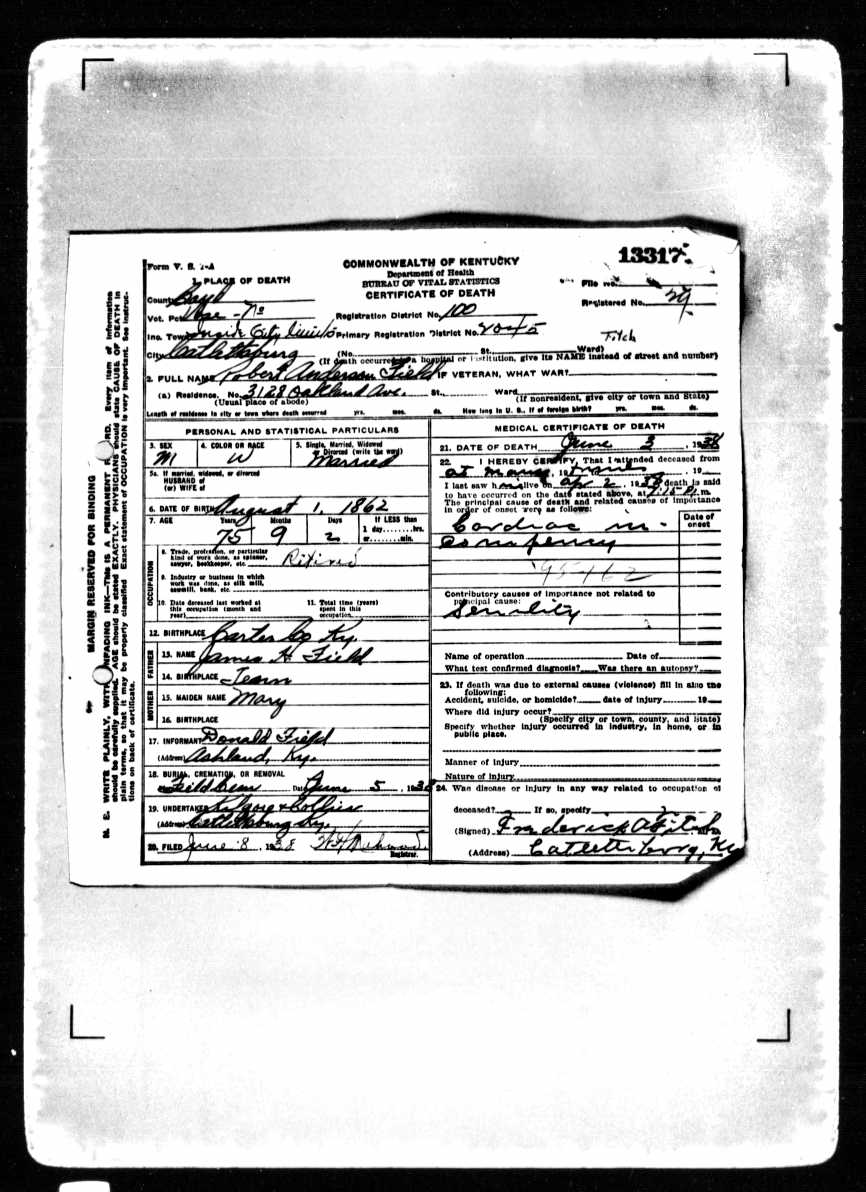 13317
Form V. S. 1-A
COMMONWEALTH OF KENTUCKY
Department of Health
BUREAU OF VITAL STATISTICS
CERTIFICATE OF DEATH
File No.
Registered No. 29
1. PLACE OF DEATH
County Boyd
Vot. Pct. Registration District No. 100
Inc. Town Inside City Limits Primary Registration District No. 2045
Fitch
City Catlettsburg (No. St. Ward)
(If death occurred in a hospital or institution, give its NAME instead of street and number)
2. FULL NAME Robert Anderson Field IF VETERAN, WHAT WAR?
(a) Residence. No. 3128 Oakland Ave. St., Ward
(Usual place of abode) (If nonresident, give city or town and State)
Length of residence in city or town where death occurred yrs. mos. ds. How long in U. S., if of foreign birth? yrs. mos. ds.
PERSONAL AND STATISTICAL PARTICULARS
3. SEX M
4. COLOR OR RACE W
5. Single, Married, Widowed or Divorced (write the word) Married
5a. If married, widowed, or divorced
HUSBAND of
(or) WIFE of
6. DATE OF BIRTH August 1, 1862
7. AGE Years Months Days If LESS than
75 9 2 1 day, hrs.
or min.
OCCUPATION
8. Trade, profession, or particular
kind of work done, as spinner,
sawyer, bookkeeper, etc. Retired
9. Industry or business in which
work was done, as silk mill,
sawmill, bank, etc.
10. Date deceased last worked at
this occupation (month and
year)
11. Total time (years)
spent in this
occupation
12. BIRTHPLACE Carter Co Ky.
FATHER
13. NAME James H Field
14. BIRTHPLACE Tenn
MOTHER
15. MAIDEN NAME Mary
16. BIRTHPLACE
17. INFORMANT Donald Field
(Address) Ashland, Ky.
18. BURIAL, CREMATION, OR REMOVAL
Date June 5, 1938
19. UNDERTAKER Kilgore & Collier
(Address) Catlettsburg Ky.
20. FILED June 8, 1938
Registrar.
MEDICAL CERTIFICATE OF DEATH
21. DATE OF DEATH June 3, 1938
22. I HEREBY CERTIFY, That I attended deceased from
at , 19 , 19
I last saw him alive on Apr 2, 1938 death is said
to have occurred on the date stated above, at m.
The principal cause of death and related causes of importance
in order of onset were as follows:
Date of
onset
Cardiac in-
compency
95162
Contributory causes of importance not related to
principal cause:
Senility
Name of operation Date of
What test confirmed diagnosis? Was there an autopsy?
23. If death was due to external causes (violence) fill in also the
following:
Accident, suicide, or homicide? date of injury 19
Where did injury occur?
(Specify city or town, county, and State)
Specify whether injury occurred in industry, in home, or in
public place.
Manner of injury
Nature of injury
24. Was disease or injury in any way related to occupation of
deceased? If so, specify
(Signed) Frederick A Fitch
(Address) Catlettsburg, Ky
MARGIN RESERVED FOR BINDING
N. B. WRITE PLAINLY, WITH UNFADING INK—THIS IS A PERMANENT RECORD. Every item of information
should be carefully supplied. AGE should be stated EXACTLY. PHYSICIANS should state CAUSE OF DEATH in
plain terms, so that it may be properly classified. Exact statement of OCCUPATION is very important. See instruc-
tions on back of certificate.